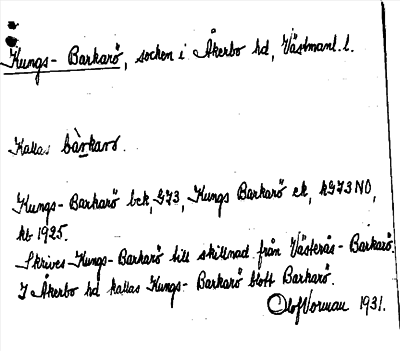 Kungs-Barkarö, socken i Åkerbo hd, Västmanl. l.
Kallas bàrkarö.
Kungs-Barkarö bek, G73, Kungs Barkarö ek, kG73 NO,
kt 1925.
Skrives Kungs-Barkarö till skillnad från Västerås-Barkarö.
I Åkerbo hd kallas Kungs-Barkarö blott Barkarö.
Olof Vorman 1931.